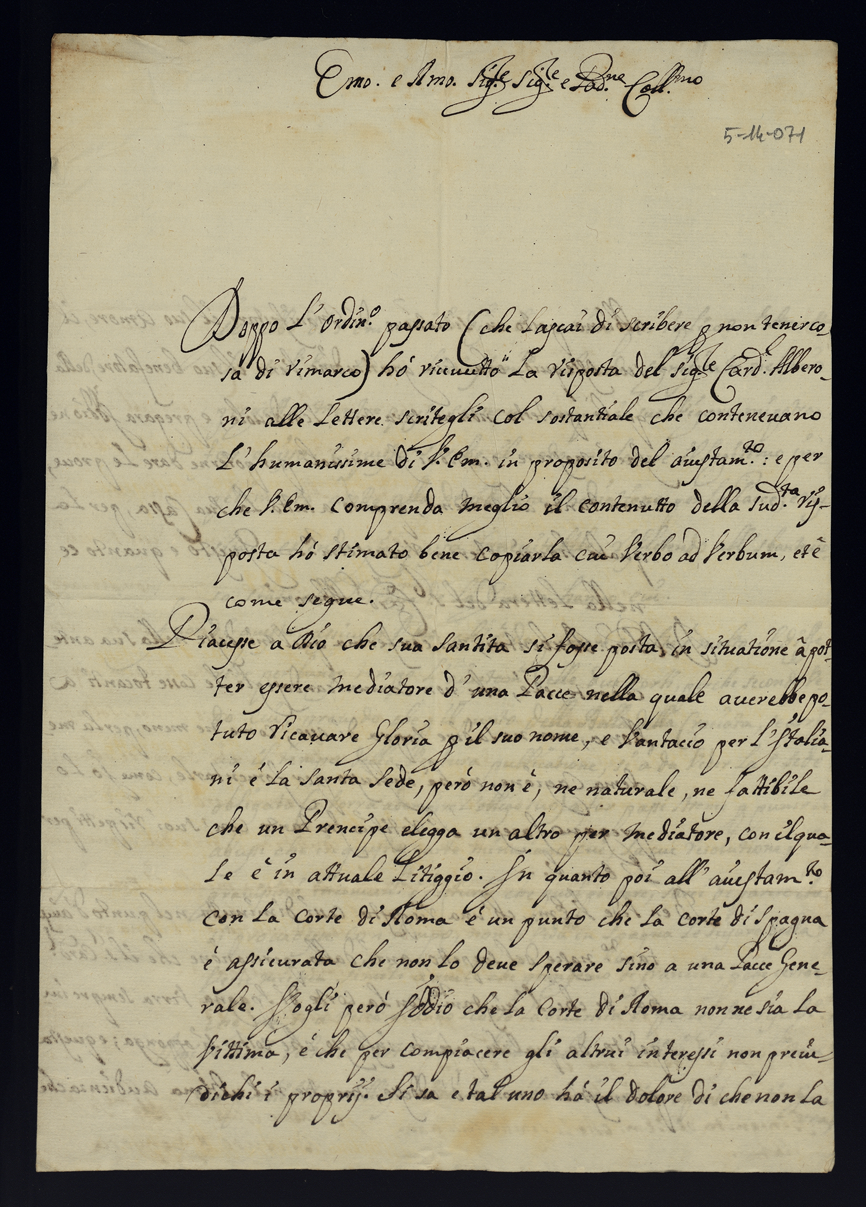 Emo. e Rmo. Sig.re Sig.re e Pad.ne Coll.mo
5-14-071
Doppo L'Ordin.o passato (che Lasciai di scribere p non tenir co-
sa di rimarco) hó riceuutto La risposta del Sig.re Card.l Albero-
ni alle Lettere scritegli col sostantiale che conteneuano
L'humanissime di V. Em. in proposito del aiustam.to: e per
che V. Em. comprenda meglio il contenutto della sud.ta ris-
posta hó stimato bene copiarla cui Verbo ad Verbum, et é
come segue.
Piacesse a Dio che sua Santita si fosse posta in situatione á pot-
ter essere mediatore d'una Pacce nella quale auerebbe po-
tuto ricauare Gloria p il suo nome, e Vantaccio per L'Italia-
ni é La Santa Sede, peró non é, ne naturale, ne fattibile
che un Prencipe elegga un altro per mediatore, con il qua-
Le é in attuale Litiggio. In quanto poi all'aiustam.to
con La Corte di Roma é un punto che La Corte di Spagna
é assicurata che non lo deve sperare sino a una Pacce Gene-
rale. Vogli peró Iddio che La Corte di Roma non ne sia La
Vittima, é che per compiacere gli altrui interessi non preiu-
dichi i proprij. Si sa e tal uno há il dolore di che non La